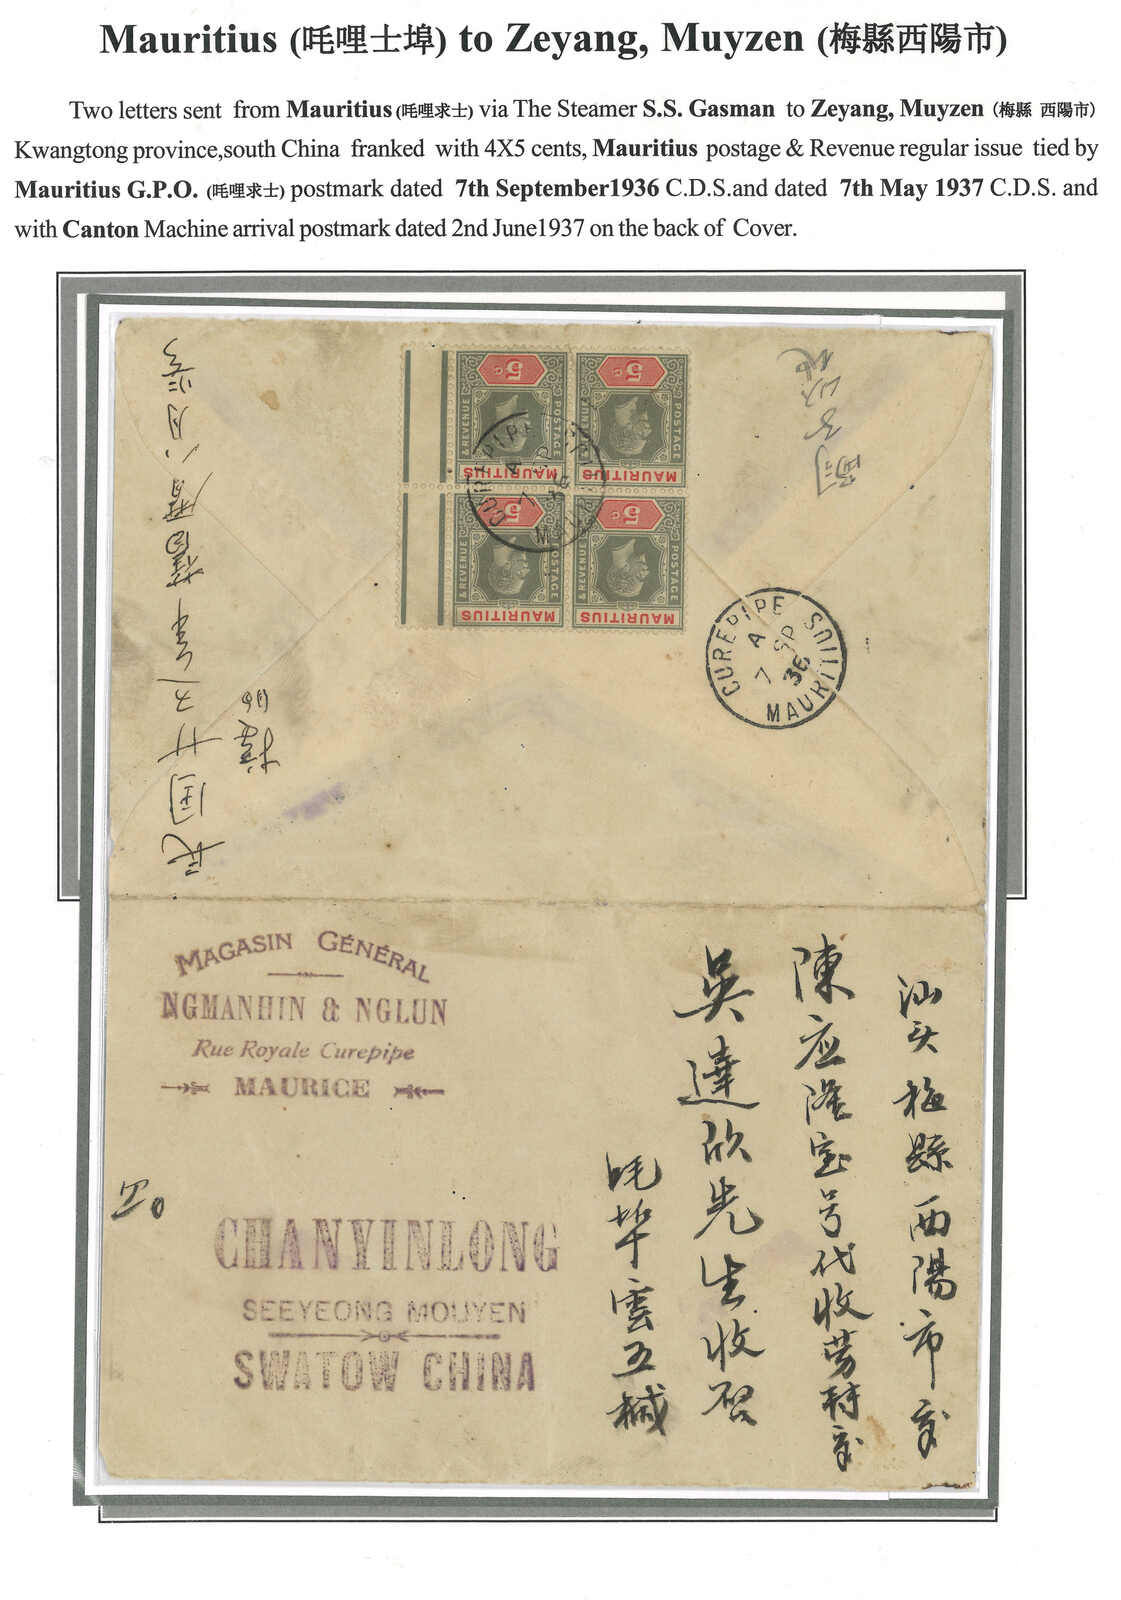 Mauritius (吒哩士埠) to Zeyang, Muyzen (梅縣西陽市)
Two letters sent from Mauritius (吒哩求士) via The Steamer S.S. Gasman to Zeyang, Muyzen (梅縣 西陽市)
Kwangtong province,south China franked with 4X5 cents, Mauritius postage & Revenue regular issue tied by
Mauritius G.P.O. (吒哩求士) postmark dated 7th September1936 C.D.S.and dated 7th May 1937 C.D.S. and
with Canton Machine arrival postmark dated 2nd June1937 on the back of Cover.
5c POSTAGE & REVENUE MAURITIUS
5c POSTAGE & REVENUE MAURITIUS
5c POSTAGE & REVENUE MAURITIUS
5c POSTAGE & REVENUE MAURITIUS
CUREPIPE
A
7 SP
36
CUREPIPE SOUTH
A
7 SP
36
MAURITIUS
民国廿五年舊曆八月
MAGASIN GÉNÉRAL
NGMANHIN & NGLUN
Rue Royale Curepipe
MAURICE
CHANYINLONG
SEEYEONG MOUYEN
SWATOW CHINA
汕头梅縣西陽市交
陳应隆宝号代收劳村交
吳達欣先生收启
吒埠雲五械